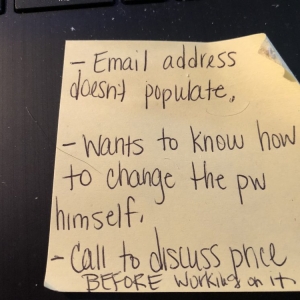 - Email address
doesn't populate.
- Wants to know how
to change the pw
himself.
- Call to discuss price
BEFORE working on it.